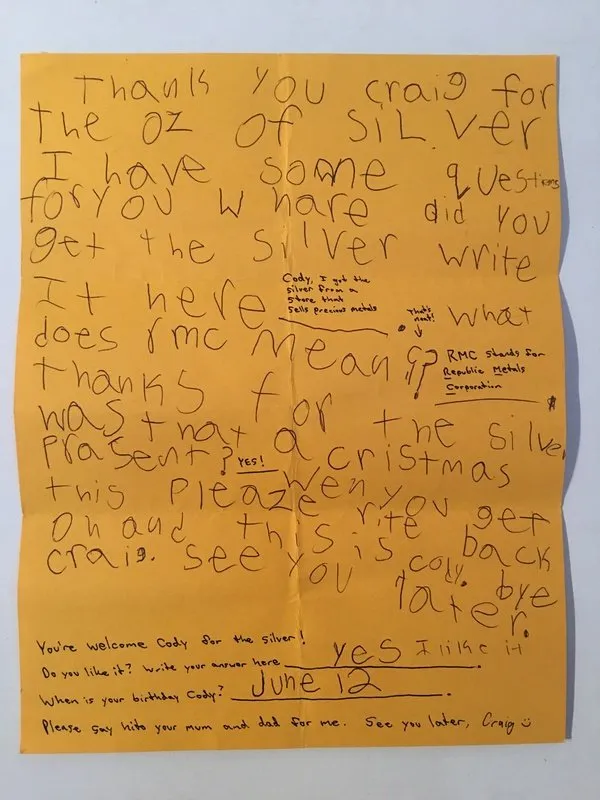 Thank you craig for
the oz of SiLver
I have some questions
for you whare did you
get the silver write
It here Cody, I got the
silver from a
store that
sells precious metals
what
That's
neat!
does rmc mean ??
RMC stands for
Republic Metals
Corporation
thanks for the silver
was that a cristmas
prasent? YES!
this pleaze wen you get
on and rite back
this is cody.
craig. see you later. bye
You're welcome Cody for the silver!
Do you like it? Write your answer here yes I like it.
When is your birthday Cody? June 12.
Please say hi to your mum and dad for me. See you later, Craig